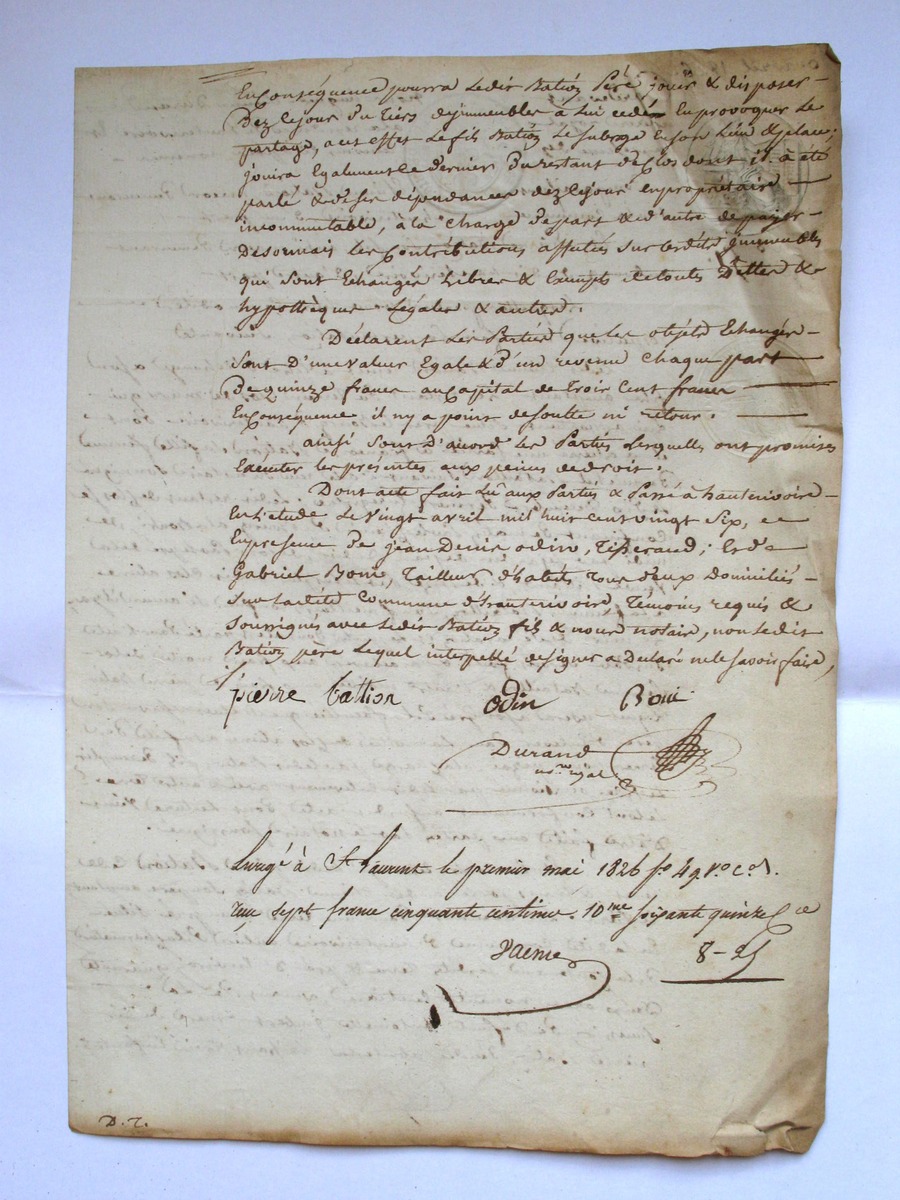 En Conséquence pourra ledit Bation Père jouir & disposer
Dez le jour du tiers d'immeubles à lui cedé En provoquer le
partage, a cet effet le fils Bation le subroge En son lieu & place,
jouira Egalement le dernier Du restant de Clos dont il a été
parlé & de ses dépendances dez le jour En propriétaire
incommutable, à la charge de part & d'autre de payer
Desormais les Contributions affectées sur lesdits immeubles
qui sont Echangés Libres & Exempts de toutes Dettes &
hypothèques Légales & autres.
Déclarent les Parties que les objets Echangés
sont D'une valeur Egale & D'un revenu chaque part
De quinze francs au Capital de trois Cent francs
En Conséquence il n'y a point de soulte ni retour.
ainsi sont D'acord les Parties Lesquelles ont promises
Executer les présentes aux peines de droit.
Dont acte fait Lu aux Parties & Passé à hauterivoire
En L'etude Le vingt avril mil huit cent vingt six, en
En presence de jean Denis odin, Tisserand, Et de
Gabriel Boui, Tailleur d'habits tous deux Domiciliés
Sur ladite Commune d'hauterivoire, Témoins requis &
Soussignés avec ledit Bation fils & nous notaire, non ledit
Bation père Lequel interpellé de signer a Declaré ne le savoir faire,
pierre battion odin Boui
Durand
nre. royal
Enregé à St Laurent le premier mai 1826 fo 49 Vo Co 1.
reçu sept francs cinquante centimes. 10me soixante quinze Ce
8-25
D. T.